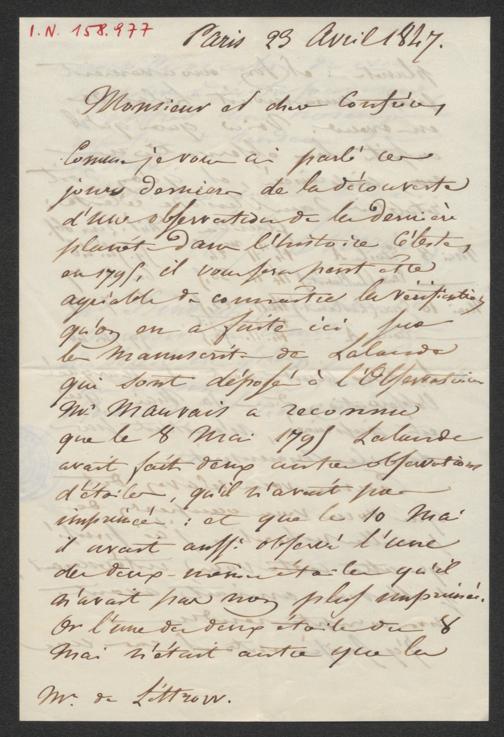 I.N. 158.977
Paris 23 Avril 1847.
Monsieur et cher Confrère,
Comme je vous ai parlé ces
jours derniers de la découverte
d'une observation de la dernière
planète dans l'histoire Céleste,
en 1795, il vous sera peut être
agréable de connaitre la vérification
qu'on en a faite ici sur
les manuscrits de Lalande
qui sont déposés à l'Observatoire
Mr. Mauvais a reconnu
que le 8 Mai 1795 Lalande
avait fait deux autres observations
d'étoiles, qu'il n'avait pas
imprimées: et que le 10 Mai
il avait aussi observé l'une
des deux mêmes étoiles qu'il
n'avait pas non plus imprimée.
Or l'une des deux étoiles du 8
Mai n'était autre que la
Mr. de Littrow.